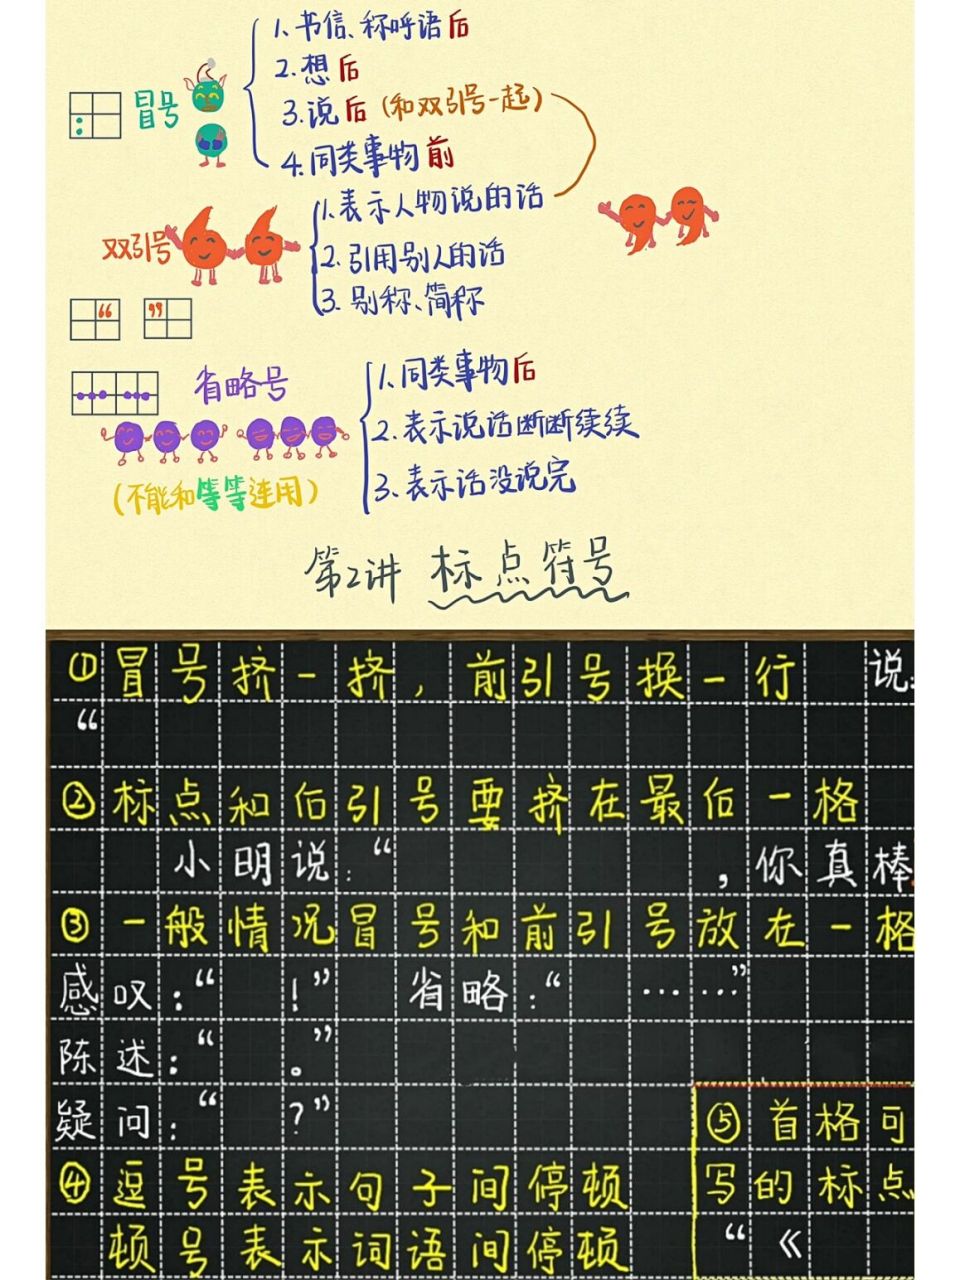 冒号
1.书信、称呼语后
2.想后
3.说后(和双引号一起)
4.同类事物前
双引号
1.表示人物说的话
2.引用别人的话
3.别称、简称
“ ”
省略号
1.同类事物后
2.表示说话断断续续
3.表示话没说完
(不能和等等连用)
第2讲 标点符号
①冒号挤一挤,前引号换一行 说:
“
②标点和后引号要挤在最后一格
小明说:“ ,你真棒
③一般情况冒号和前引号放在一格
感叹:“ !” 省略:“ ……”
陈述:“ 。”
疑问:“ ?”
④逗号表示句子间停顿
顿号表示词语间停顿
⑤首格可
写的标点
“ 《